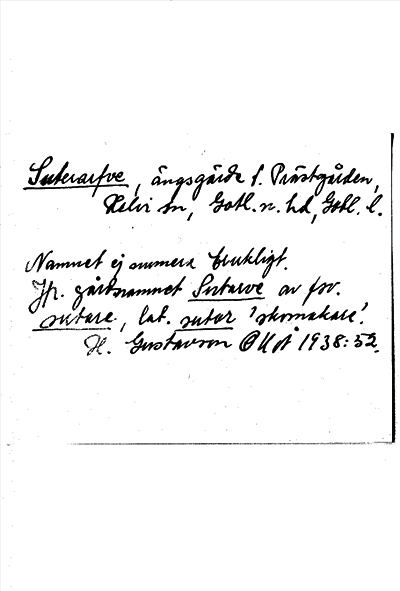 Suterarfve, ängsgärde f. Prästgården,
Helvi sn, Gotl. n. hd, Gotl. l.
Namnet ej numera brukligt.
Jfr. gårdsnamnet Sutarve av fsv.
sutare, lat. sutor 'skomakare'.
H. Gustavson 1938:52.